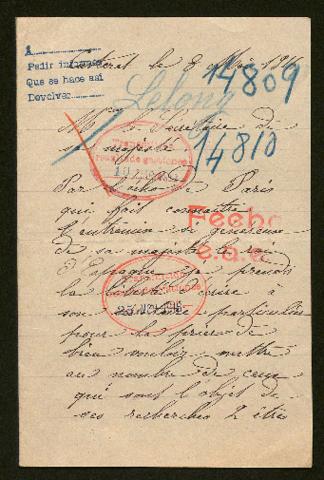 A
Pedir informes
Que se hace asi
Devolver
le 8 Mai 191
14809
Lelong
14810
Mr le Secrétaire de
sa majesté
Par l'écho de Paris
qui fait connaître
l'entremise si généreuse
de sa majesté le roi
d'Espagne je prends
la liberté d'écrire à
son particulier
pour le prier de
bien vouloir mettre
au nombre de ceux
qui sont l'objet de
ses recherches 2 êtres
Fecha